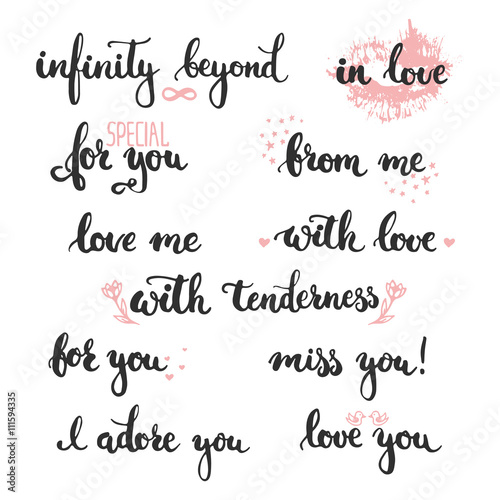 infinity beyond
in love
SPECIAL
for you
from me
love me
with love
with tenderness
for you
miss you!
I adore you
love you
Adobe Stock | #111594335